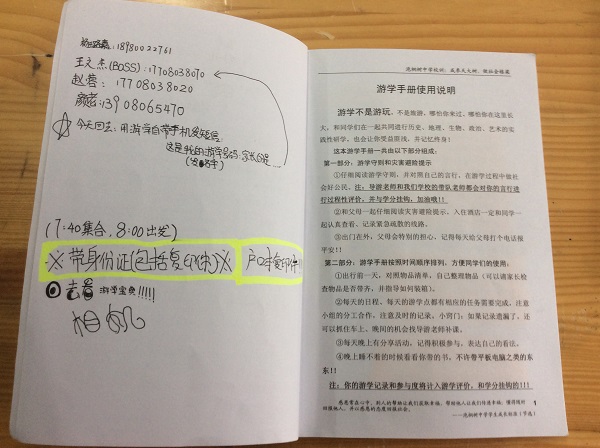 18980022761
王文杰(BOSS):17708038070
赵蓉: 17708038020
颜老:13908065470
☆今天回去:用游学自带手机发短信
(7:40集合,8:00出发)
※带身份证(包括复印件)※
户口本复印件
去看 游学宝典!!!!!
相机
成养天大树,做社会栋梁
游学手册使用说明
游学不是游玩,不是旅游,哪怕你来过,哪怕你在这里长
大,和同学们在一起共同进行历史、地理、生物、政治、艺术的实
践性研学,也会让你受益匪浅,并记忆终身!
这本游学手册一共由以下部分组成:
第一部分:游学守则和灾避险提示
①仔细阅读游学守则,并对照自己的言行,在游学过程中做社
会好公民。注:导游老师和我们学校的带队老师都会对你的言行进
行过程性评价,并与学分挂钩,加油哦!!
②和父母一起仔细阅读灾害避险提示,入住酒店一定和同学一
起认真查看、记录紧急疏散的线路。
③出门在外,父母会特别的担心,记得每天给父母打个电话报
平安!!
第二部分:游学手册按照时间顺序排列,方便同学们的使用:
①出行前一天,对照物品清单,自己整理物品(可以请家长检
查物品是否带齐,并指导如何装箱)。
②每天的日程、每天的游学点都有相应的任务需要完成,注意
小组的分工合作,注意及时的记录。小窍门:如果记录遗漏了,还
可以抓住车上、晚间的机会找导游老师补课。
③每天晚上有分享活动,记得积极参与、表达自己的看法。
④晚上睡不着的时候看看你带的书,不许带平板电脑之类的东
东!!
注:你的游学记录和参与度将计入游学评价,和学分挂钩的!!!
感恩常在心中,别人的帮助让我们发展幸福,帮助他人让我们传递幸福,懂得随时
回报他人,并以感恩的态度回报社会。
1